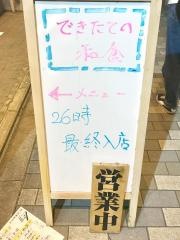 できたての
和食
← メニュー
26時
最終入店
営業中